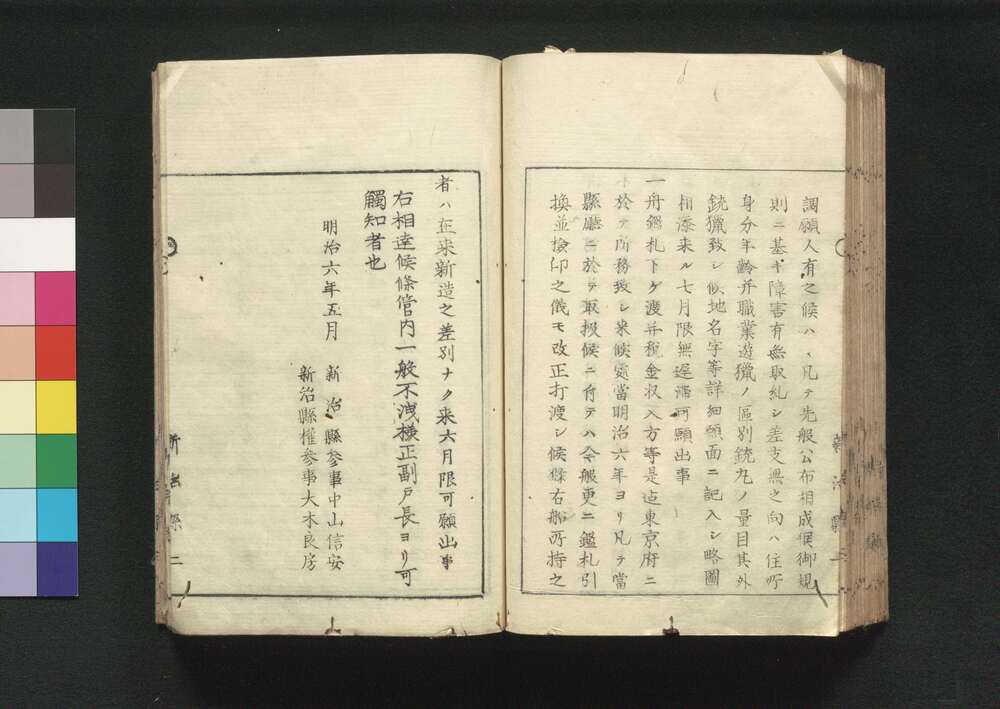 調願人有之候ハヽ凡テ先般公布相成候御規
則ニ基キ障害有無取糺シ差支無之向ハ住所
身分年齢并職業遊獵ノ區別銃丸ノ量目其外
銃獵致シ候地名字等詳細願面ニ記入シ略圖
相添来ル七月限無遅滞可願出事
一舟鑑札下ケ渡并税金収入方等是迠東京府ニ
於テ所務致シ来候處當明治六年ヨリ凡テ當
縣廳ニ於テ取扱候ニ付テハ今般更ニ鑑札引
換並検印之儀モ改正打渡シ候條右船所持之
者ハ在来新造之差別ナク来六月限可願出事
右相達候條管内一般不洩様正副戸長ヨリ可
觸知者也
明治六年五月
新治縣参事中山信安
新治縣權参事大木良房
新治縣
二